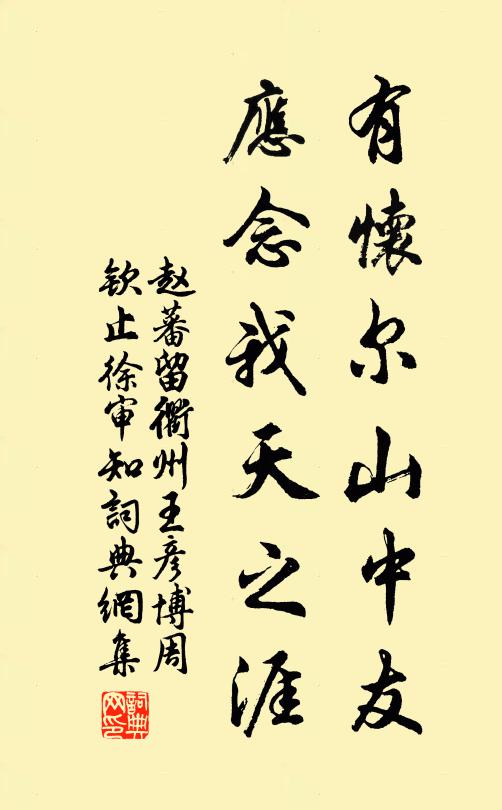 有懷尔山中友
應念我天之涯
赵蕃留衢州王彦博周
欽止徐审知詞典網集
詞典网印